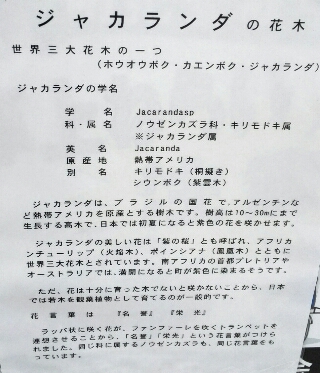 ジャカランダの花木
世界三大花木の一つ
（ホウオウボク・カエンボク・ジャカランダ）
ジャカランダの学名
学名 Jacarandasp
科・属名 ノウゼンカズラ科・キリモドキ属
※ジャカランダ属
英名 Jacaranda
原産地 熱帯アメリカ
別名 キリモドキ（桐擬き）
シウンボク（紫雲木）
ジャカランダは、ブラジルの国花で、アルゼンチンな
ど熱帯アメリカを原産とする樹木です。樹高は10～30mにまで
生長する高木で、日本では初夏になると紫色の花を咲かせます。
ジャカランダの美しい花は「紫の桜」とも呼ばれ、アフリカ
ンチューリップ（火焔木）、ポインシアナ（鳳凰木）とともに
世界三大花木とされています。南アフリカの首都プレトリアや
オーストラリアでは、満開になると町が紫色に染まるそうです。
ただ、花は十分に育った木でないと咲かないことから、日本
では若木を観葉植物として育てるのが一般的です。
花言葉は 『名誉』 『栄光』
ラッパ状に咲く花が、ファンファーレを吹くトランペットを
連想させることから、「名誉」「栄光」という花言葉がつけら
れました。同じ科に属するノウゼンカズラも、同じ花言葉をも
っています。